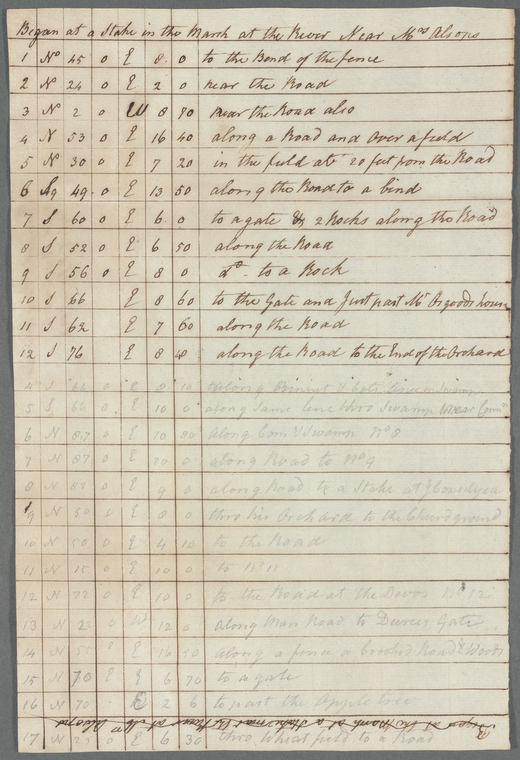 Began at a Stake in the Marsh at the River Near Mrs Alsops
1 No 45 0 E 8 0 to the Bend of the fence
2 N 24 0 E 2 0 near the Road
3 N 2 0 W 8 70 near the Road also
4 N 53 0 E 16 40 along a Road and over a field
5 No 30 0 E 7 20 in the field at 20 feet from the Road
6 49 0 E 13 50 along the Road to a bind
7 S 60 0 E 6 0 to a gate & 2 Rocks along the Road
8 S 52 0 E 6 50 along the Road
9 S 56 0 E 8 0 do. to a Rock
10 S 66 E 8 60 to the Gate and Just past Mr Osgoods house
11 S 62 E 7 60 along the Road
12 S 76 E 8 40 along the Road to the End of the Orchard
4 S 66 0 E 8 10 along
5 S 66 0 E 10 0 along same line thro Swamp near
6 N 87 0 E 10 80 along Swamp No 8
7 N 87 0 E 20 0 along Road to No 9
8 N 0 E 9 0 along Road to a Stake at
9 N 50 0 E 8 0 thro his Orchard to the
10 N 50 0 E 4 10 to the Road
11 N 15 0 E 10 0 to No 11
12 N 72 0 E 10 0 to the Road at the No 12
13 N 0 W 12 0 along Man Road to Gate
14 N 55 E 16 50 along a fence a Crooked Road & Woods
15 N 70 E E 6 70 to a gate
16 N 70 E 2 6 to past the Apple tree
Began at a Stake near the River at Mrs Alsops
17 N 23 0 E 6 30 thro wheat field to a Road